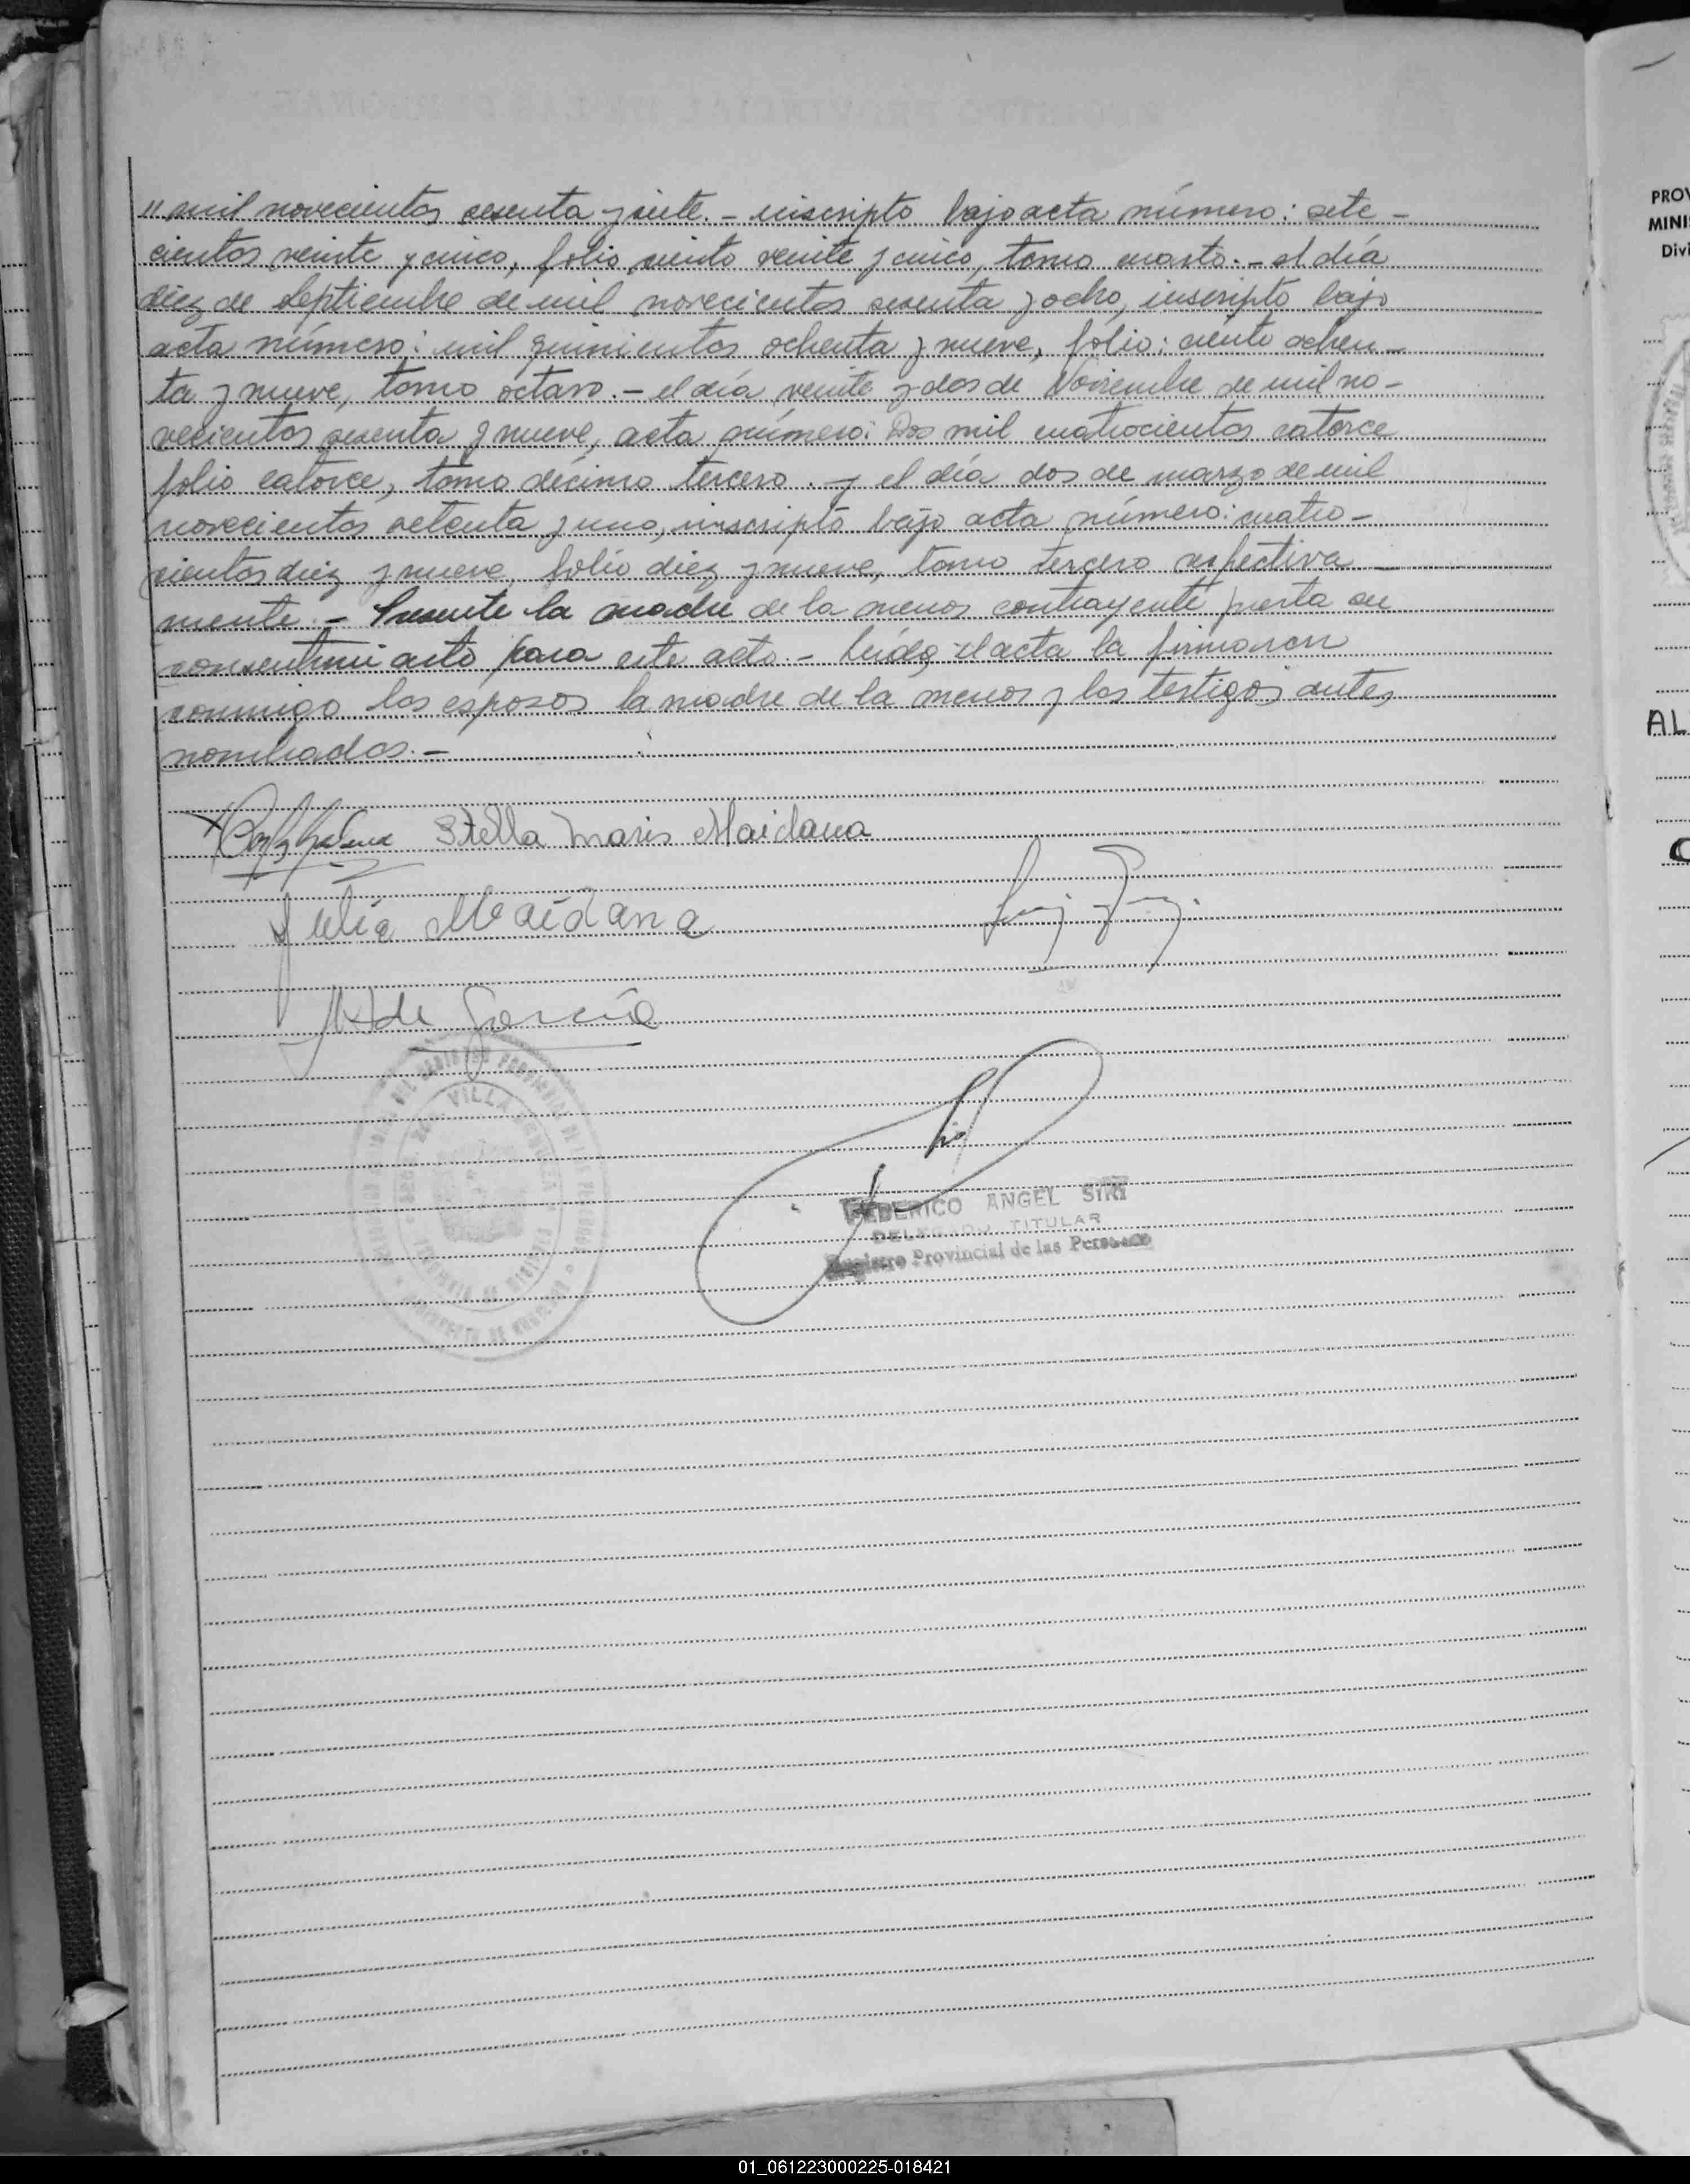 " mil novecientos sesenta y siete. - inscripto bajo acta número: sete -
cientos veinte y cinco, folio ciento veinte y cinco, tomo cuarto. - el día
diez de Septiembre de mil novecientos sesenta y ocho, inscripto bajo
acta número: mil quinientos ochenta y nueve, folio: ciento ochen -
ta y nueve, tomo octavo. - el día veinte y dos de Noviembre de mil no -
vecientos sesenta y nueve, acta número: Dos mil cuatrocientos catorce
folio catorce, tomo décimo tercero. y el día dos de marzo de mil
novecientos setenta y uno, inscripto bajo acta número: cuatro -
cientos diez y nueve, folio diez y nueve, tomo tercero respectiva -
mente. - Presente la madre de la menor contrayente presta su
consentimiento para este acto. - Leída el acta la firmaron
conmigo los esposos la madre de la menor y los testigos antes
nombrados. -
Stella Maris Maidana
Julia Maidana
de García
VILLA
FEDERICO ANGEL SIRI
DELEGADO TITULAR
Registro Provincial de las Personas
PROV
MINI
Divi
AL
01_061223000225-018421